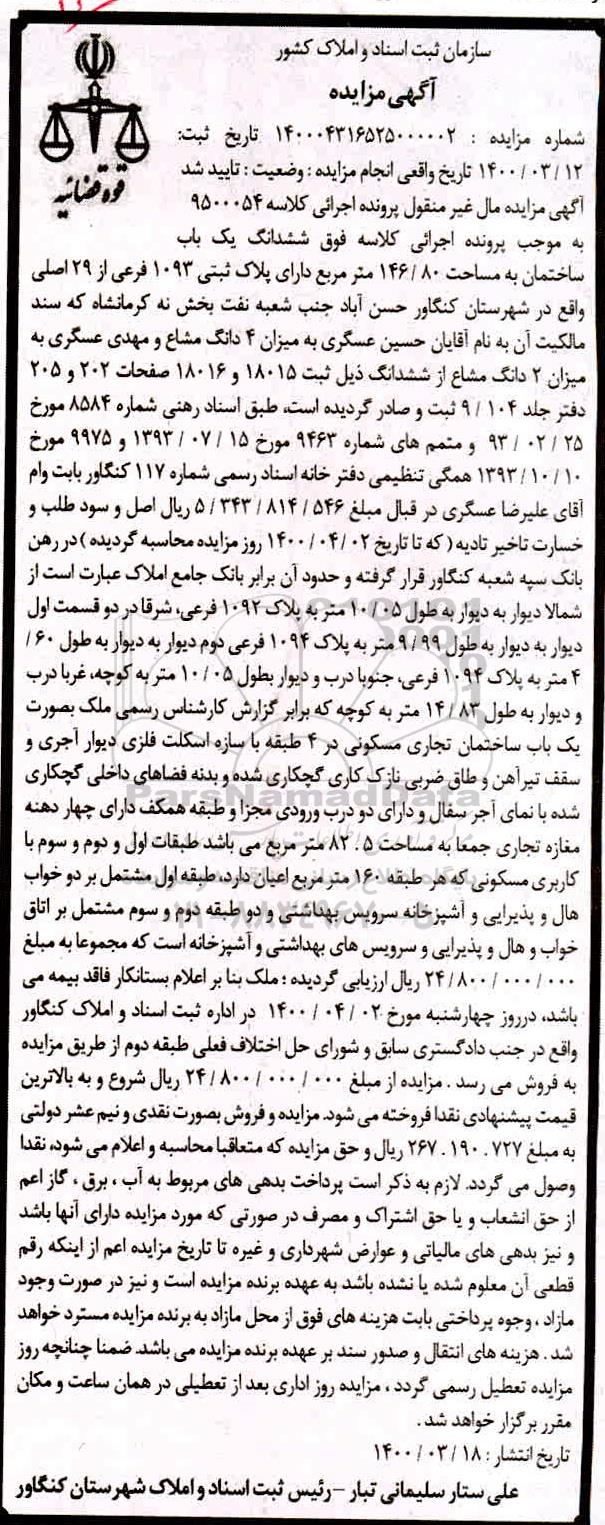 سازمان ثبت اسناد و املاک کشور
آگهی مزایده
قوه قضائیه
شماره مزایده : ۱۴۰۰۰۴۳۱۶۵۲۵۰۰۰۰۰۲ تاریخ ثبت:
۱۴۰۰/۰۳/۱۲ تاریخ واقعی انجام مزایده : وضعیت : تایید شد
آگهی مزایده مال غیر منقول پرونده اجرائی کلاسه ۹۵۰۰۰۵۴
به موجب پرونده اجرائی کلاسه فوق ششدانگ یک باب
ساختمان به مساحت ۱۴۶/۸۰ متر مربع دارای پلاک ثبتی ۱۰۹۳ فرعی از ۲۹ اصلی
واقع در شهرستان کنگاور حسن آباد جنب شعبه نفت بخش نه کرمانشاه که سند
مالکیت آن به نام آقایان حسین عسگری به میزان ۴ دانگ مشاع و مهدی عسگری به
میزان ۲ دانگ مشاع از ششدانگ ذیل ثبت ۱۸۰۱۵ و ۱۸۰۱۶ صفحات ۲۰۲ و ۲۰۵
دفتر جلد ۹/۱۰۴ ثبت و صادر گردیده است، طبق اسناد رهنی شماره ۸۵۸۴ مورخ
۹۳/۰۲/۲۵ و متمم های شماره ۹۴۶۳ مورخ ۱۳۹۳/۰۷/۱۵ و ۹۹۷۵ مورخ
۱۳۹۳/۱۰/۱۰ همگی تنظیمی دفتر خانه اسناد رسمی شماره ۱۱۷ کنگاور بابت وام
آقای علیرضا عسگری در قبال مبلغ ۵/۳۴۳/۸۱۴/۵۴۶ ریال اصل و سود طلب و
خسارت تاخیر تادیه ( که تا تاریخ ۱۴۰۰/۰۴/۰۲ روز مزایده محاسبه گردیده ) در رهن
بانک سپه شعبه کنگاور قرار گرفته و حدود آن برابر بانک جامع املاک عبارت است از
شمالا دیوار به دیوار به طول ۱۰/۰۵ متر به پلاک ۱۰۹۲ فرعی، شرقا در دو قسمت اول
دیوار به دیوار به طول ۹/۹۹ متر به پلاک ۱۰۹۴ فرعی دوم دیوار به دیوار به طول ۶۰/
۴ متر به پلاک ۱۰۹۴ فرعی، جنوبا درب و دیوار بطول ۱۰/۰۵ متر به کوچه، غربا درب
و دیوار به طول ۱۴/۸۳ متر به کوچه که برابر گزارش کارشناس رسمی ملک بصورت
یک باب ساختمان تجاری مسکونی در ۴ طبقه با سازه اسکلت فلزی دیوار آجری و
سقف تیرآهن و طاق ضربی نازک کاری گچکاری شده و بدنه فضاهای داخلی گچکاری
شده با نمای آجر سفال و دارای دو درب ورودی مجزا و طبقه همکف دارای چهار دهنه
مغازه تجاری جمعا به مساحت ۸۲.۵ متر مربع می باشد طبقات اول و دوم و سوم با
کاربری مسکونی که هر طبقه ۱۶۰ متر مربع اعیان دارد، طبقه اول مشتمل بر دو خواب
هال و پذیرایی و آشپزخانه سرویس بهداشتی و دو طبقه دوم و سوم مشتمل بر اتاق
خواب و هال و پذیرایی و سرویس های بهداشتی و آشپزخانه است که مجموعا به مبلغ
۲۴/۸۰۰/۰۰۰/۰۰۰ ریال ارزیابی گردیده ؛ ملک بنا بر اعلام بستانکار فاقد بیمه می
باشد، درروز چهارشنبه مورخ ۱۴۰۰/۰۴/۰۲ در اداره ثبت اسناد و املاک کنگاور
واقع در جنب دادگستری سابق و شورای حل اختلاف فعلی طبقه دوم از طریق مزایده
به فروش می رسد . مزایده از مبلغ ۲۴/۸۰۰/۰۰۰/۰۰۰ ریال شروع و به بالاترین
قیمت پیشنهادی نقدا فروخته می شود. مزایده و فروش بصورت نقدی و نیم عشر دولتی
به مبلغ ۲۶۷.۱۹۰.۷۲۷ ریال و حق مزایده که متعاقبا محاسبه و اعلام می شود، نقدا
وصول می گردد. لازم به ذکر است پرداخت بدهی های مربوط به آب ، برق ، گاز اعم
از حق انشعاب و یا حق اشتراک و مصرف در صورتی که مورد مزایده دارای آنها باشد
و نیز بدهی های مالیاتی و عوارض شهرداری و غیره تا تاریخ مزایده اعم از اینکه رقم
قطعی آن معلوم شده یا نشده باشد به عهده برنده مزایده است و نیز در صورت وجود
مازاد ، وجوه پرداختی بابت هزینه های فوق از محل مازاد به برنده مزایده مسترد خواهد
شد . هزینه های انتقال و صدور سند بر عهده برنده مزایده می باشد. ضمنا چنانچه روز
مزایده تعطیل رسمی گردد ، مزایده روز اداری بعد از تعطیلی در همان ساعت و مکان
مقرر برگزار خواهد شد .
تاریخ انتشار : ۱۴۰۰/۰۳/۱۸
علی ستار سلیمانی تبار – رئیس ثبت اسناد و املاک شهرستان کنگاور
ParsNamadData